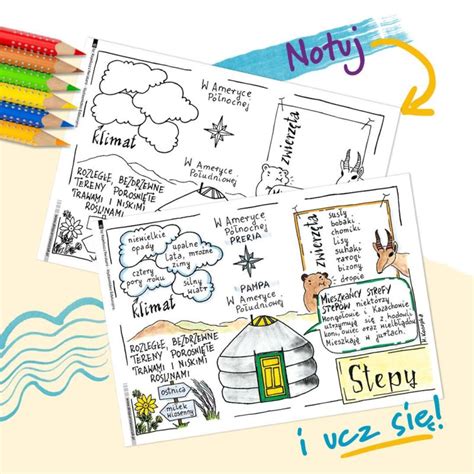 Notuj
W Ameryce
Północnej
klimat
W Ameryce
Południowej
zwierzęta
ROZLEGŁE, BEZDRZEWNE
TERENY POROŚNIĘTE
TRAWAMI I NISKIMI
ROŚLINAMI
niewielkie
opady
upalne
lata, mroźne
zimy
cztery
pory roku
silny
wiatr
klimat
W Ameryce
Północnej
PRERIA
PAMPA
W Ameryce
Południowej
zwierzęta
susły
bobaki
chomiki
lisy
suhaki
rarogi
bizony
dropie
MIESZKAŃCY STREFY
STEPÓW niektórzy
Mongołowie i Kazachowie
utrzymują się z hodowli
koni, owiec oraz wielbłądów.
Mieszkają w jurtach.
ROZLEGŁE, BEZDRZEWNE
TERENY POROŚNIĘTE
TRAWAMI I NISKIMI
ROŚLINAMI
ostnica
miłek
wiosenny
Stepy
i ucz się!